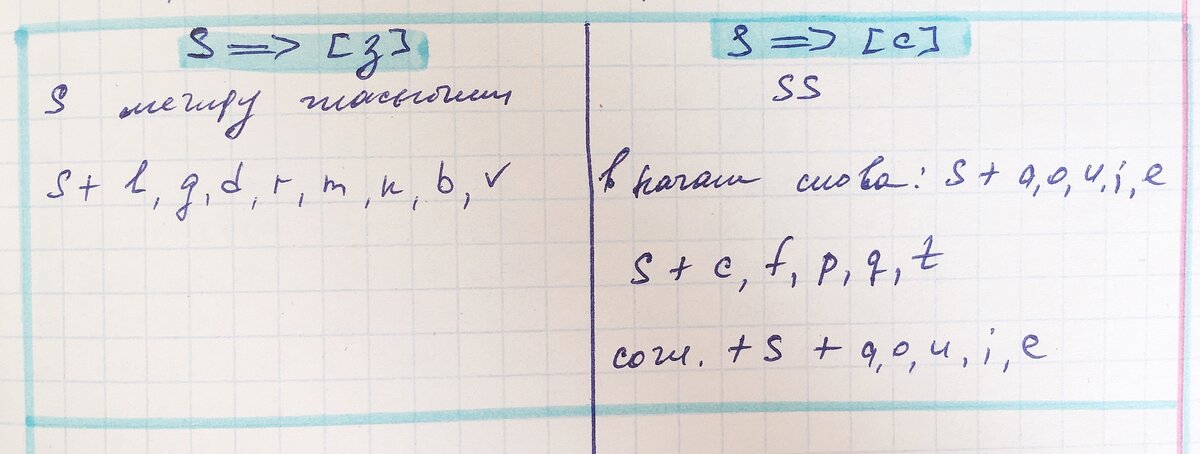 S => [з]
S между гласными
S + l, g, d, r, m, n, b, v
S => [с]
SS
в начале слова: S + a, o, u, i, e
S + c, f, p, q, t
согл. + S + a, o, u, i, e